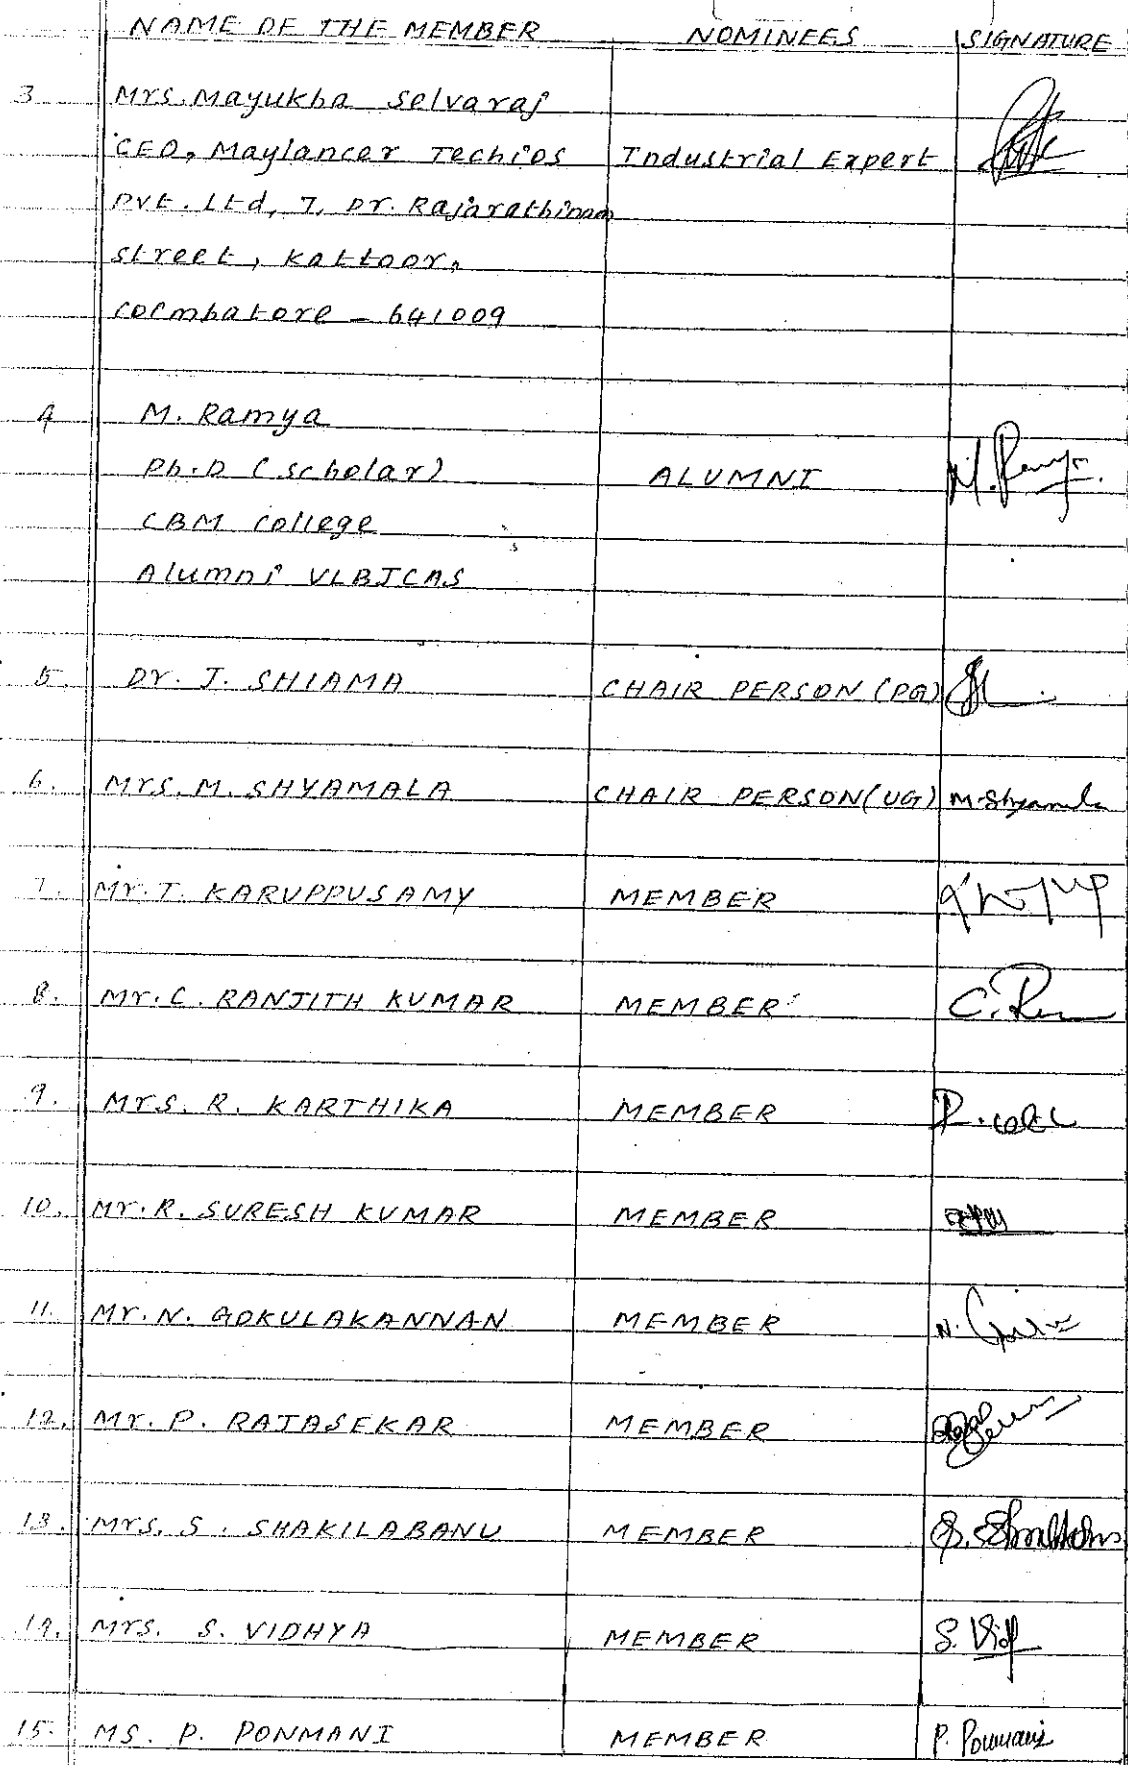 NAME OF THE MEMBER NOMINEES SIGNATURE
3 Mrs. Mayukha Selvaraj
CEO, Maylancer Techios Industrial Expert
Pvt. Ltd, 7, Dr. Rajarathinam
Street, Kattoor,
Coimbatore - 641009
4 M. Ramya
Ph.D (Scholar) ALUMNI M. Ramya
CBM College
Alumni VLBJCAS
5. Dr. J. SHIAMA CHAIR PERSON (PG)
6. Mrs. M. SHYAMALA CHAIR PERSON (UG) M. Shyamala
7. Mr. T. KARUPPUSAMY MEMBER
8. Mr. C. RANJITH KUMAR MEMBER
9. Mrs. R. KARTHIKA MEMBER
10. Mr. R. SURESH KUMAR MEMBER
11. Mr. N. GOKULAKANNAN MEMBER
12. Mr. P. RAJASEKAR MEMBER
13. Mrs. S. SHAKILABANU MEMBER
14. Mrs. S. VIDHYA MEMBER S. Vid
15. MS. P. PONMANI MEMBER P. Ponmani